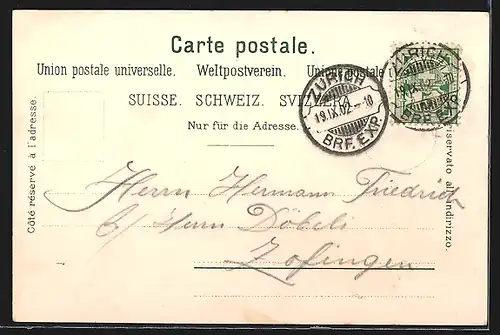 Carte postale.
Union postale universelle. Weltpostverein. Unione postale
SUISSE. SCHWEIZ. SVIZZERA.
Nur für die Adresse.
Côté réservé à l'adresse.
riservato all'indirizzo.
ZÜRICH
19.IX.02.-10
BRF. EXP.
ZÜRICH
19.IX.02.-10
BRF. EXP.
Herrn Hermann Friedrich
b/ Herrn Döbeli
Zofingen